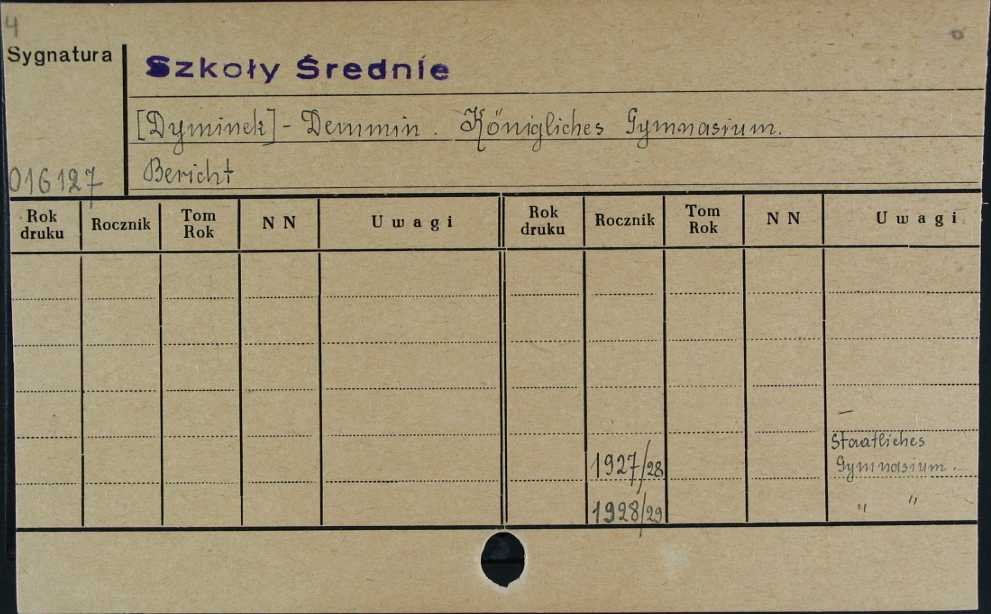 4
Sygnatura
Szkoły Średnie
[Dyminek] - Demmin. Königliches Gymnasium.
Bericht
016127
Rok druku Rocznik Tom Rok N N Uwagi Rok druku Rocznik Tom Rok N N Uwagi
Staatliches
1927/28 Gymnasium.
1928/29 " "